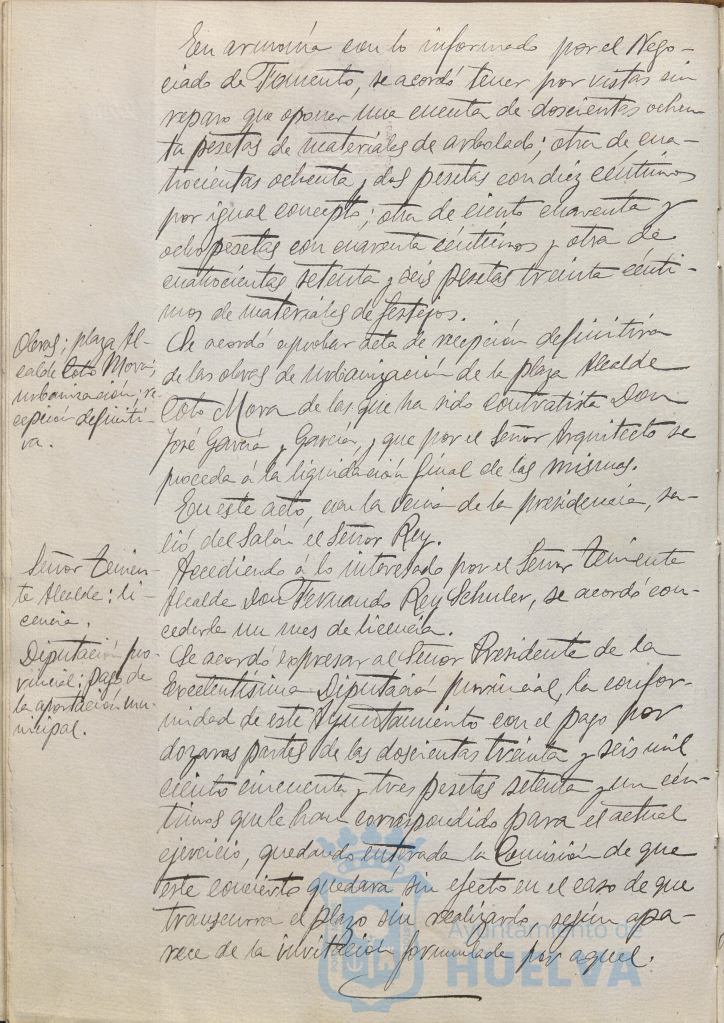 En armonía con lo informado por el Nego-
ciado de Fomento, se acordó tener por vistas sin
reparo que oponer una cuenta de doscientas ochen-
ta pesetas de materiales de arbolado; otra de cua-
trocientas ochenta y dos pesetas con diez céntimos
por igual concepto; otra de ciento cuarenta y
ocho pesetas con cuarenta céntimos y otra de
cuatrocientas setenta y seis pesetas treinta cénti-
mos de materiales de festejos.
Obras; plaza Al-
calde Coto Mora;
urbanización; re-
cepción definiti-
va.
Se acordó aprobar acta de recepción definitiva
de las obras de urbanización de la plaza Alcalde
Coto Mora de las que ha sido contratista Don
José García y García, y que por el Señor Arquitecto se
proceda á la liquidación final de las mismas.
En este acto, con la venia de la presidencia, sa-
lió del Salón el Señor Rey.
Señor Tenien-
te Alcalde: li-
cencia.
Accediendo á lo interesado por el Señor Teniente
Alcalde Don Fernando Rey Schuler, se acordó con-
cederle un mes de licencia.
Diputación pro-
vincial; pago de
la aportación mu-
nicipal.
Se acordó expresar al Señor Presidente de la
Excelentísima Diputación provincial, la confor-
midad de este Ayuntamiento con el pago por
dozavas partes de las doscientas treinta y seis mil
ciento cincuenta y tres pesetas setenta y un cén-
timos que le han correspondido para el actual
ejercicio, quedando enterada la Comisión de que
este concierto quedará sin efecto en el caso de que
transcurra el plazo sin realizarlo, según apa-
rece de la invitación formulada por aquel.
Ayuntamiento de
HUELVA